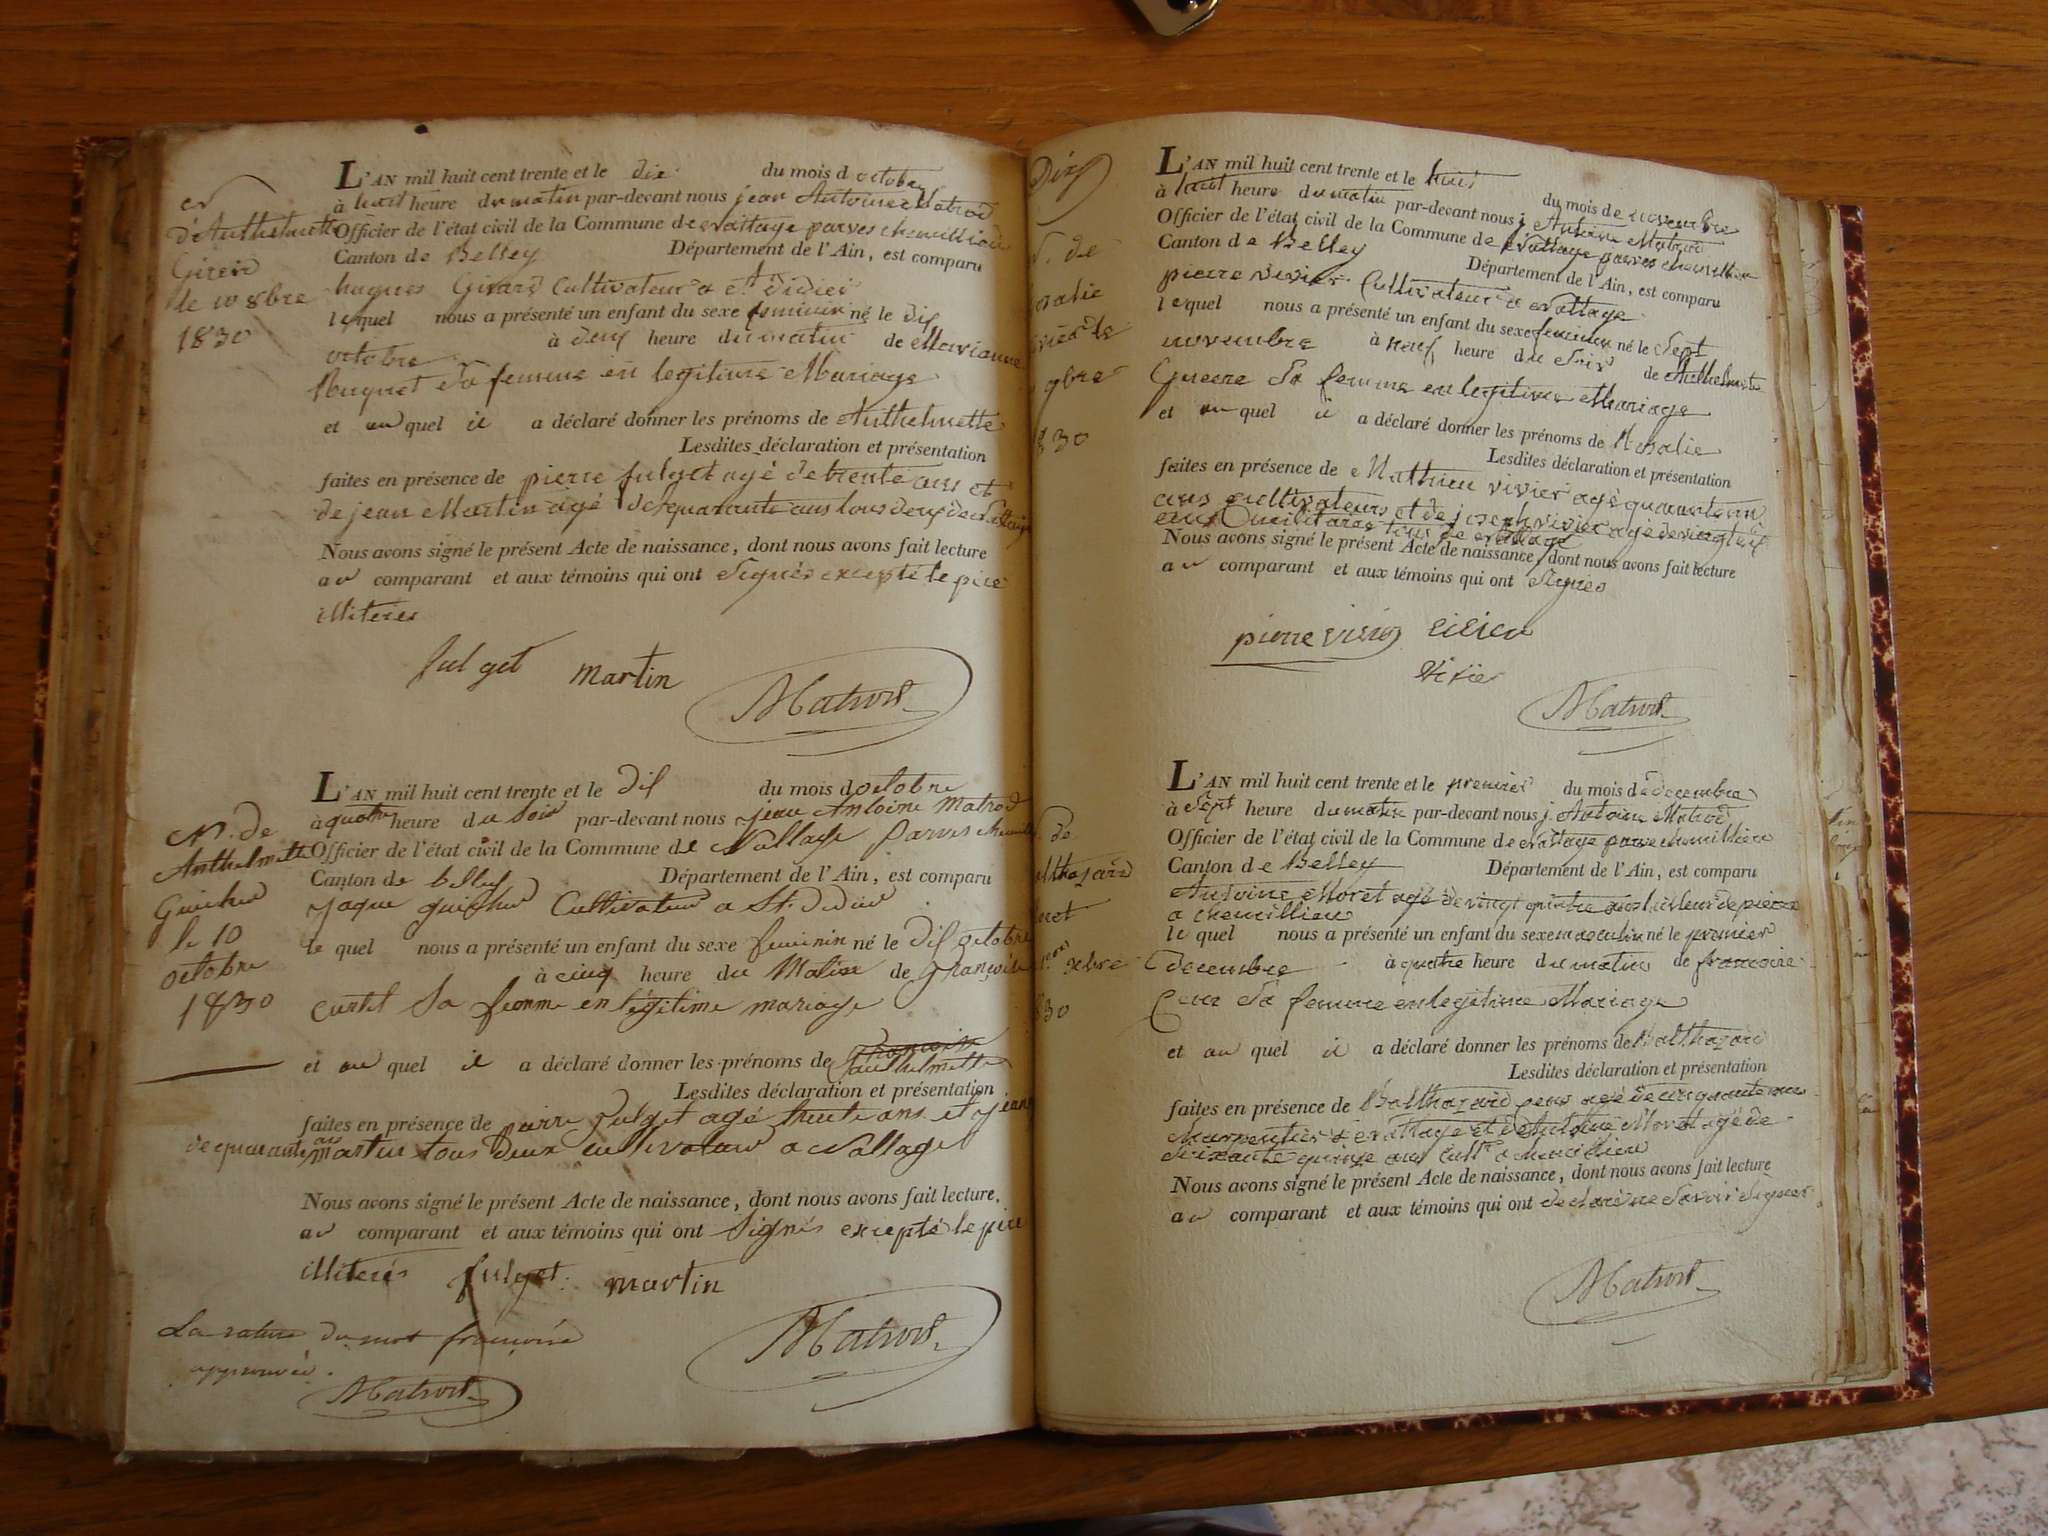 de Anthelmette
Girard
le 10 8bre
1830
L'AN mil huit cent trente et le dix du mois d octobre
à huit heure du matin par-devant nous jean Antoine Matrod
Officier de l'état civil de la Commune de Nattage parves chemillieu
Canton de Belley Département de l'Ain, est comparu
hugues Girard Cultivateur a St didier
lequel nous a présenté un enfant du sexe feminin né le dix
octobre à deux heure du matin de Marianne
Huguet Sa femme en legitime Mariage
et au quel il a déclaré donner les prénoms de Anthelmette
Lesdites déclaration et présentation
faites en présence de pierre fulget agé de trente ans et
de jean Martin agé de quarante ans tous deux de Nattage
Nous avons signé le présent Acte de naissance, dont nous avons fait lecture
au comparant et aux témoins qui ont Signés excepté le père
illiterés
fulget martin
Matrod
N. de
Anthelmette
Guicher
le 10
octobre
1830
L'AN mil huit cent trente et le dix du mois d octobre
à quatre heure du soir par-devant nous jean Antoine Matrod
Officier de l'état civil de la Commune de Nattage Parves chemillieu
Canton de belley Département de l'Ain, est comparu
jaque guicher Cultivateur a St. didier
le quel nous a présenté un enfant du sexe feminin né le dix octobre
à cinq heure du Matin de françoise
curtil Sa femme en légitime mariage
et au quel il a déclaré donner les prénoms de françoise
anthelmette
Lesdites déclaration et présentation
faites en présence de pierre fulget agé trente ans et jean
de quarante ans martin tous deux cultivateur a Nattaget
Nous avons signé le présent Acte de naissance, dont nous avons fait lecture,
au comparant et aux témoins qui ont Signés excepté le pere
illiterés fulget. martin
Matrod
La rature du mot françoise
approuvée.
Matrod
Dix
N. de
rosalie
9bre
1830
L'AN mil huit cent trente et le huit du mois de novembre
à huit heure du matin par-devant nous j. Antoine Matrod
Officier de l'état civil de la Commune de Nattage parves chemillieu
Canton de Belley Département de l'Ain, est comparu
pierre vivier Cultivateur a Nattage
lequel nous a présenté un enfant du sexe feminin né le Sept
novembre à neuf heure du Soir de Anthelmette
Guerre Sa femme en legitime Mariage
et au quel il a déclaré donner les prénoms de Rosalie
Lesdites déclaration et présentation
faites en présence de Mathieu vivier agé quarante un
ans cultivateurs et de joseph vivier agé de vingt six
ans militaire tous de Nattage
Nous avons signé le présent Acte de naissance, dont nous avons fait lecture
au comparant et aux témoins qui ont Signés
pierre vivier vivier
vivier
Matrod
N. de
althazard
1er xbre
1830
L'AN mil huit cent trente et le premier du mois de decembre
à Sept heure du matin par-devant nous j. Antoine Matrod
Officier de l'état civil de la Commune de Nattage parve chemillieu
Canton de Belley Département de l'Ain, est comparu
Antoine Moret agé de vingt quatre ans tailleur de pierre
a chemillieu
le quel nous a présenté un enfant du sexe masculin né le premier
decembre à quatre heure du matin de francoise
Sa femme en legitime Mariage
et au quel il a déclaré donner les prénoms de Balthazard
Lesdites déclaration et présentation
faites en présence de Balthazard agé de cinquante ans
charpentier a Nattage et d'Antoine Moret agé de
soixante quinze ans cultr a chemillieu
Nous avons signé le présent Acte de naissance, dont nous avons fait lecture
au comparant et aux témoins qui ont declaré ne Savoir Signer
Matrod